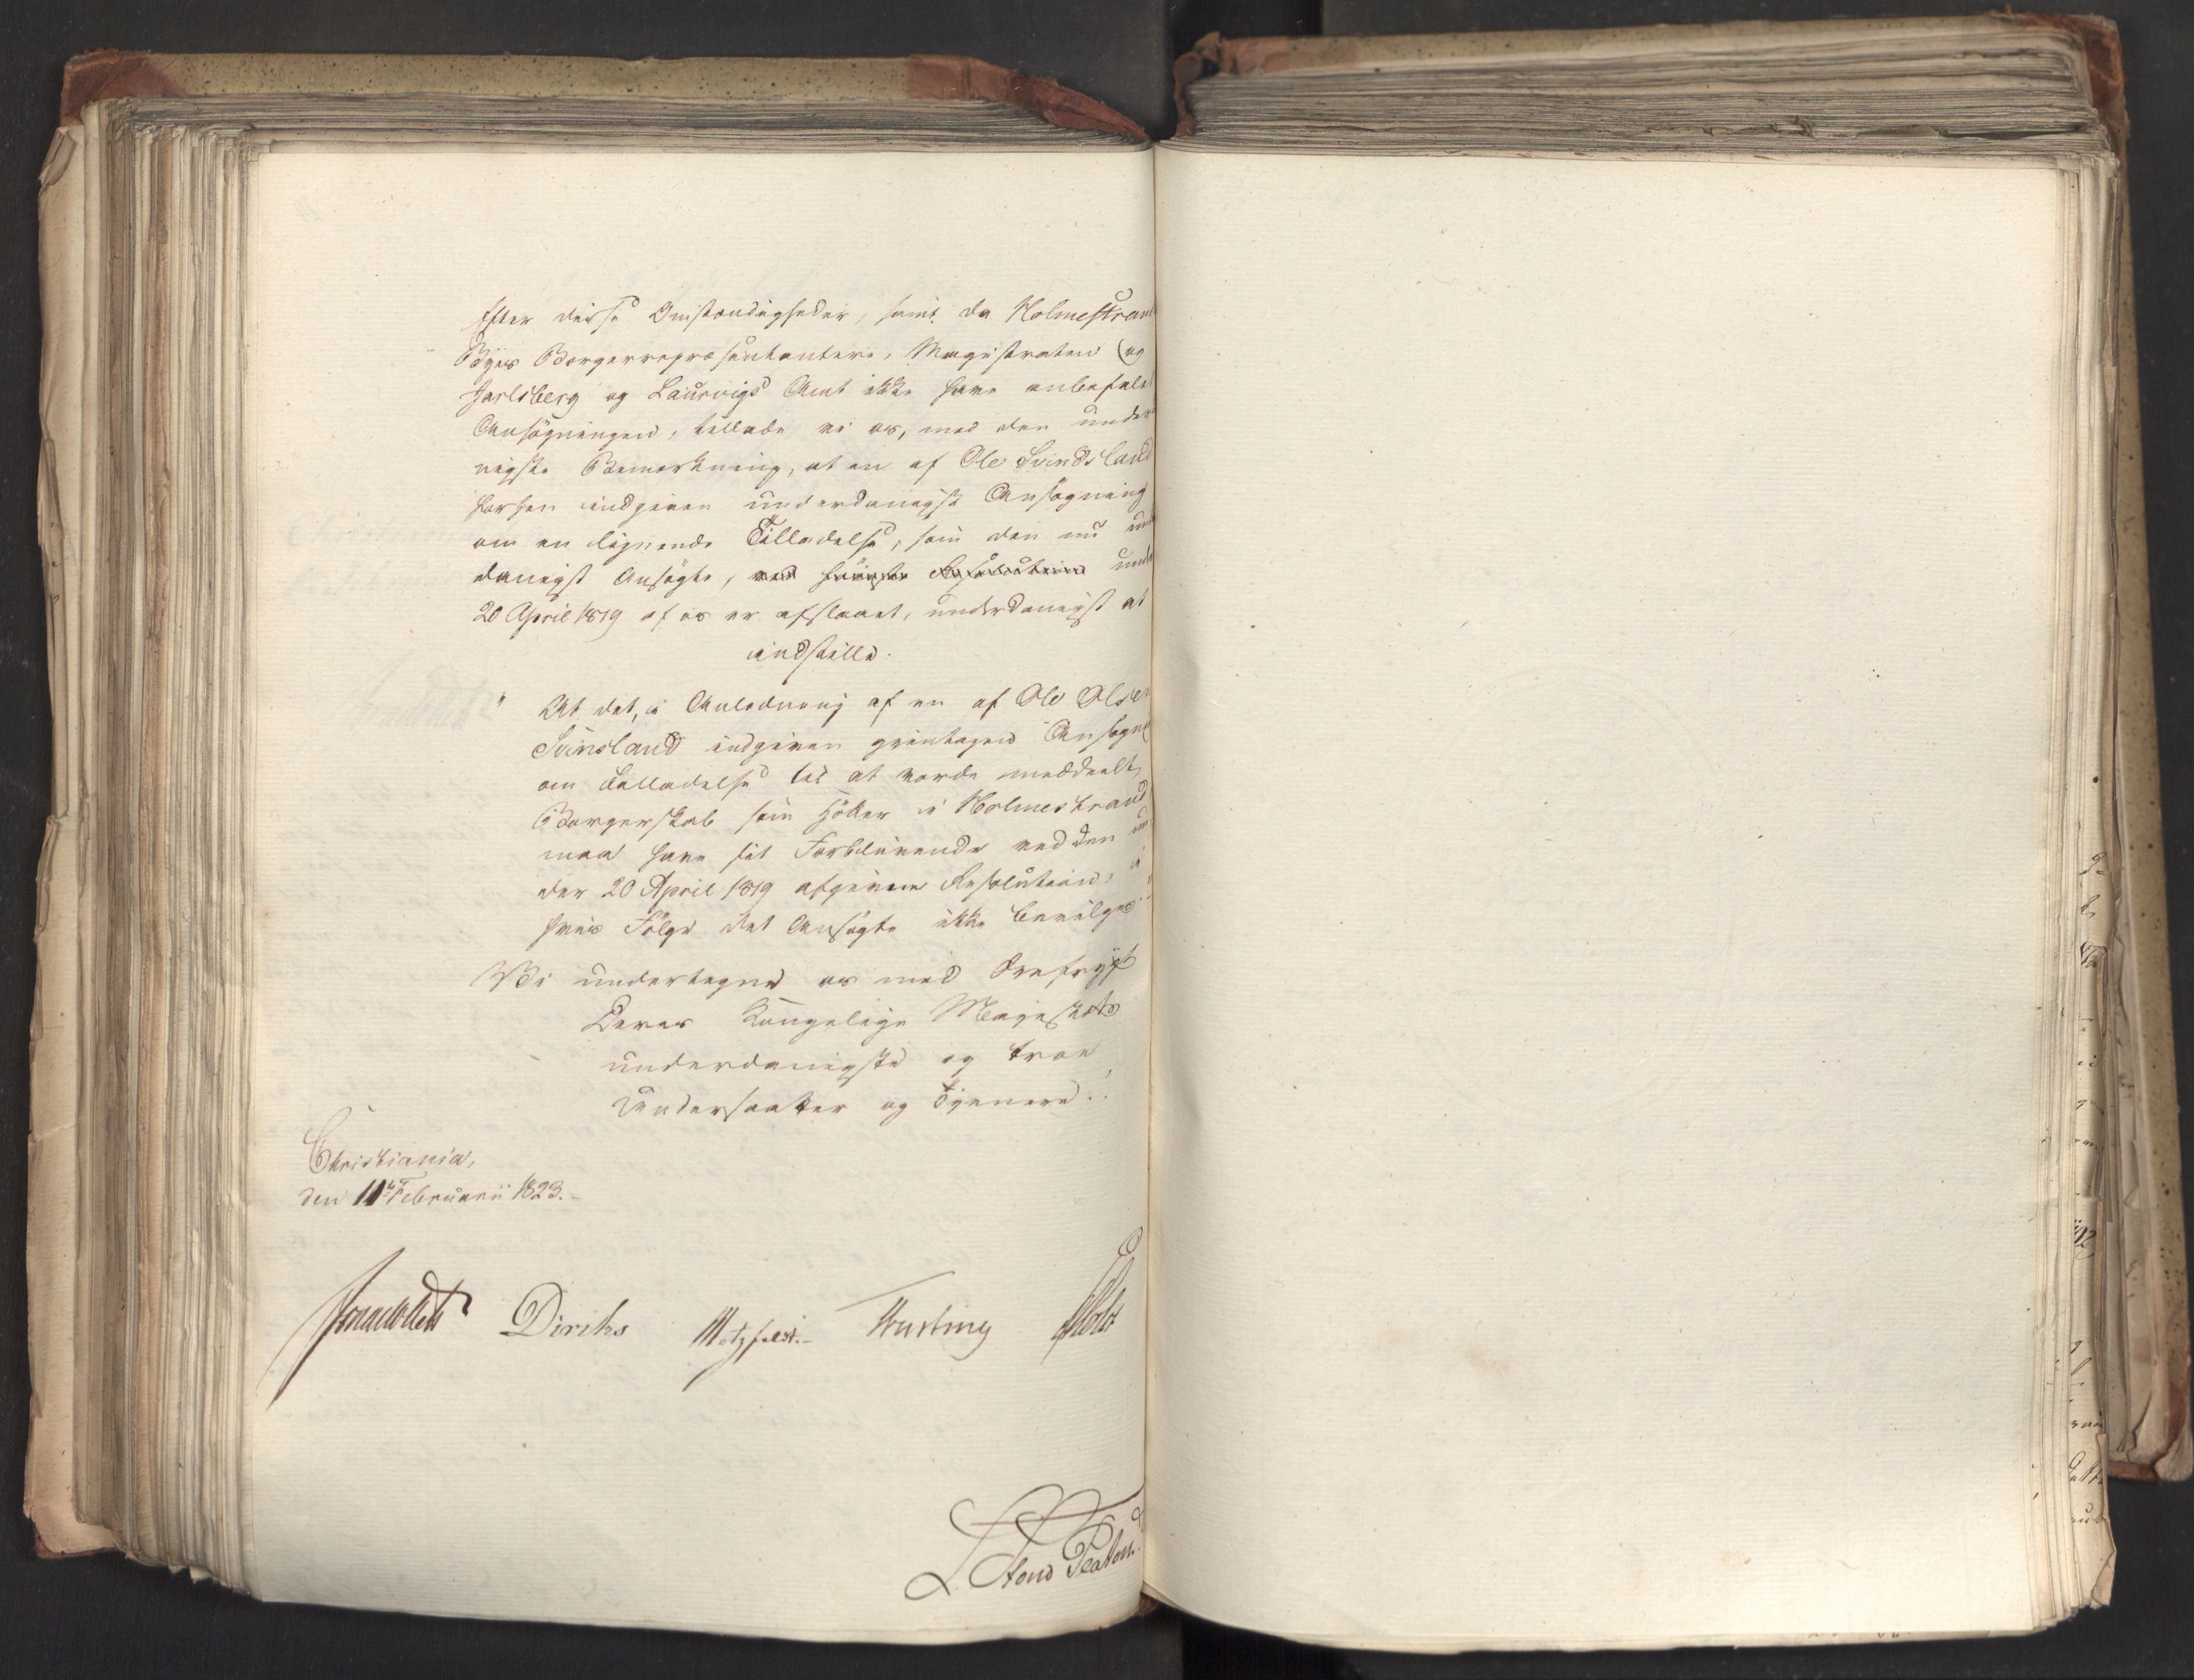 Efter disse Omstændigheder, samt da Holmestrand
Byes Borgerrepræsentantere, Magistraten og
Jarlsberg og Laurvigs Amt ikke have anbefalet
Ansøgningen, tillade vi os, med den under
nigste Bemærkning, at en af Ole Svindsland
forhen indgiven underdanigst Ansøgning
om en lignende Tilladelse, som den nu und
danigst Ansøgte, ved höieste Resolution unde
20 April 1819 af os er afslaaet, underdanigst at
indstille.
" At det, i Anledning af en af Ole Olsen
Svinsland indgiven gientagen Ansøgn
om Tilladelse til at vorde meddeelt
Borgerskab som Höker i Holmestrand
maa have sit Forblivende ved den un
der 20 April 1819 afgivne Resolution, i
hvis Følge det Ansøgte ikke bevilges"
Vi undertegne os med Ærefrygt
Deres Kongelige Majestæts
underdanigste og troe
Undersaatter og Tjenere.
Christiania,
den 11te Februarii 1823.
Diriks Motzfeldt. Krefting Holst